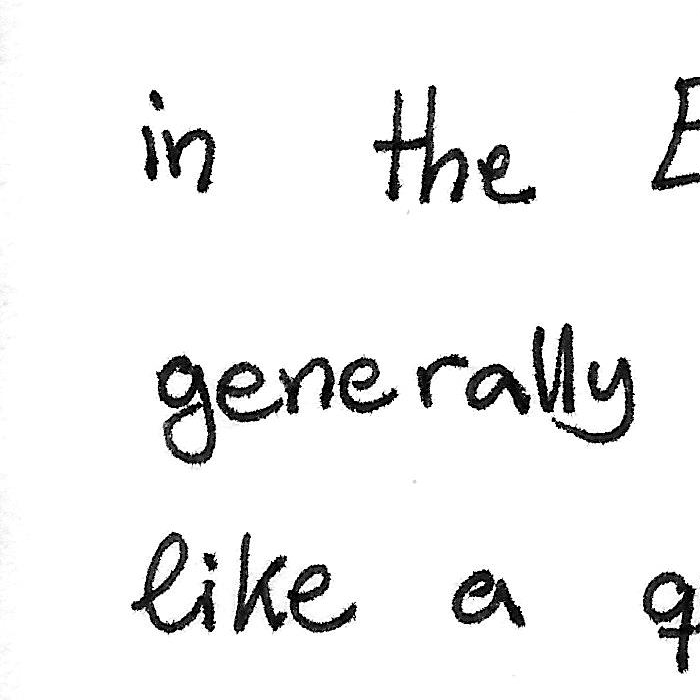 in the E
generally
like a q